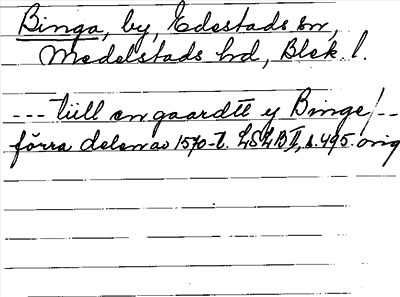 Binga, by, Edestads sn,
Medelstads hd, Blek. l.
--- tüll en gaardtt y Binge/--
förra delen av 1570-t. LSLB II, s. 495. orig